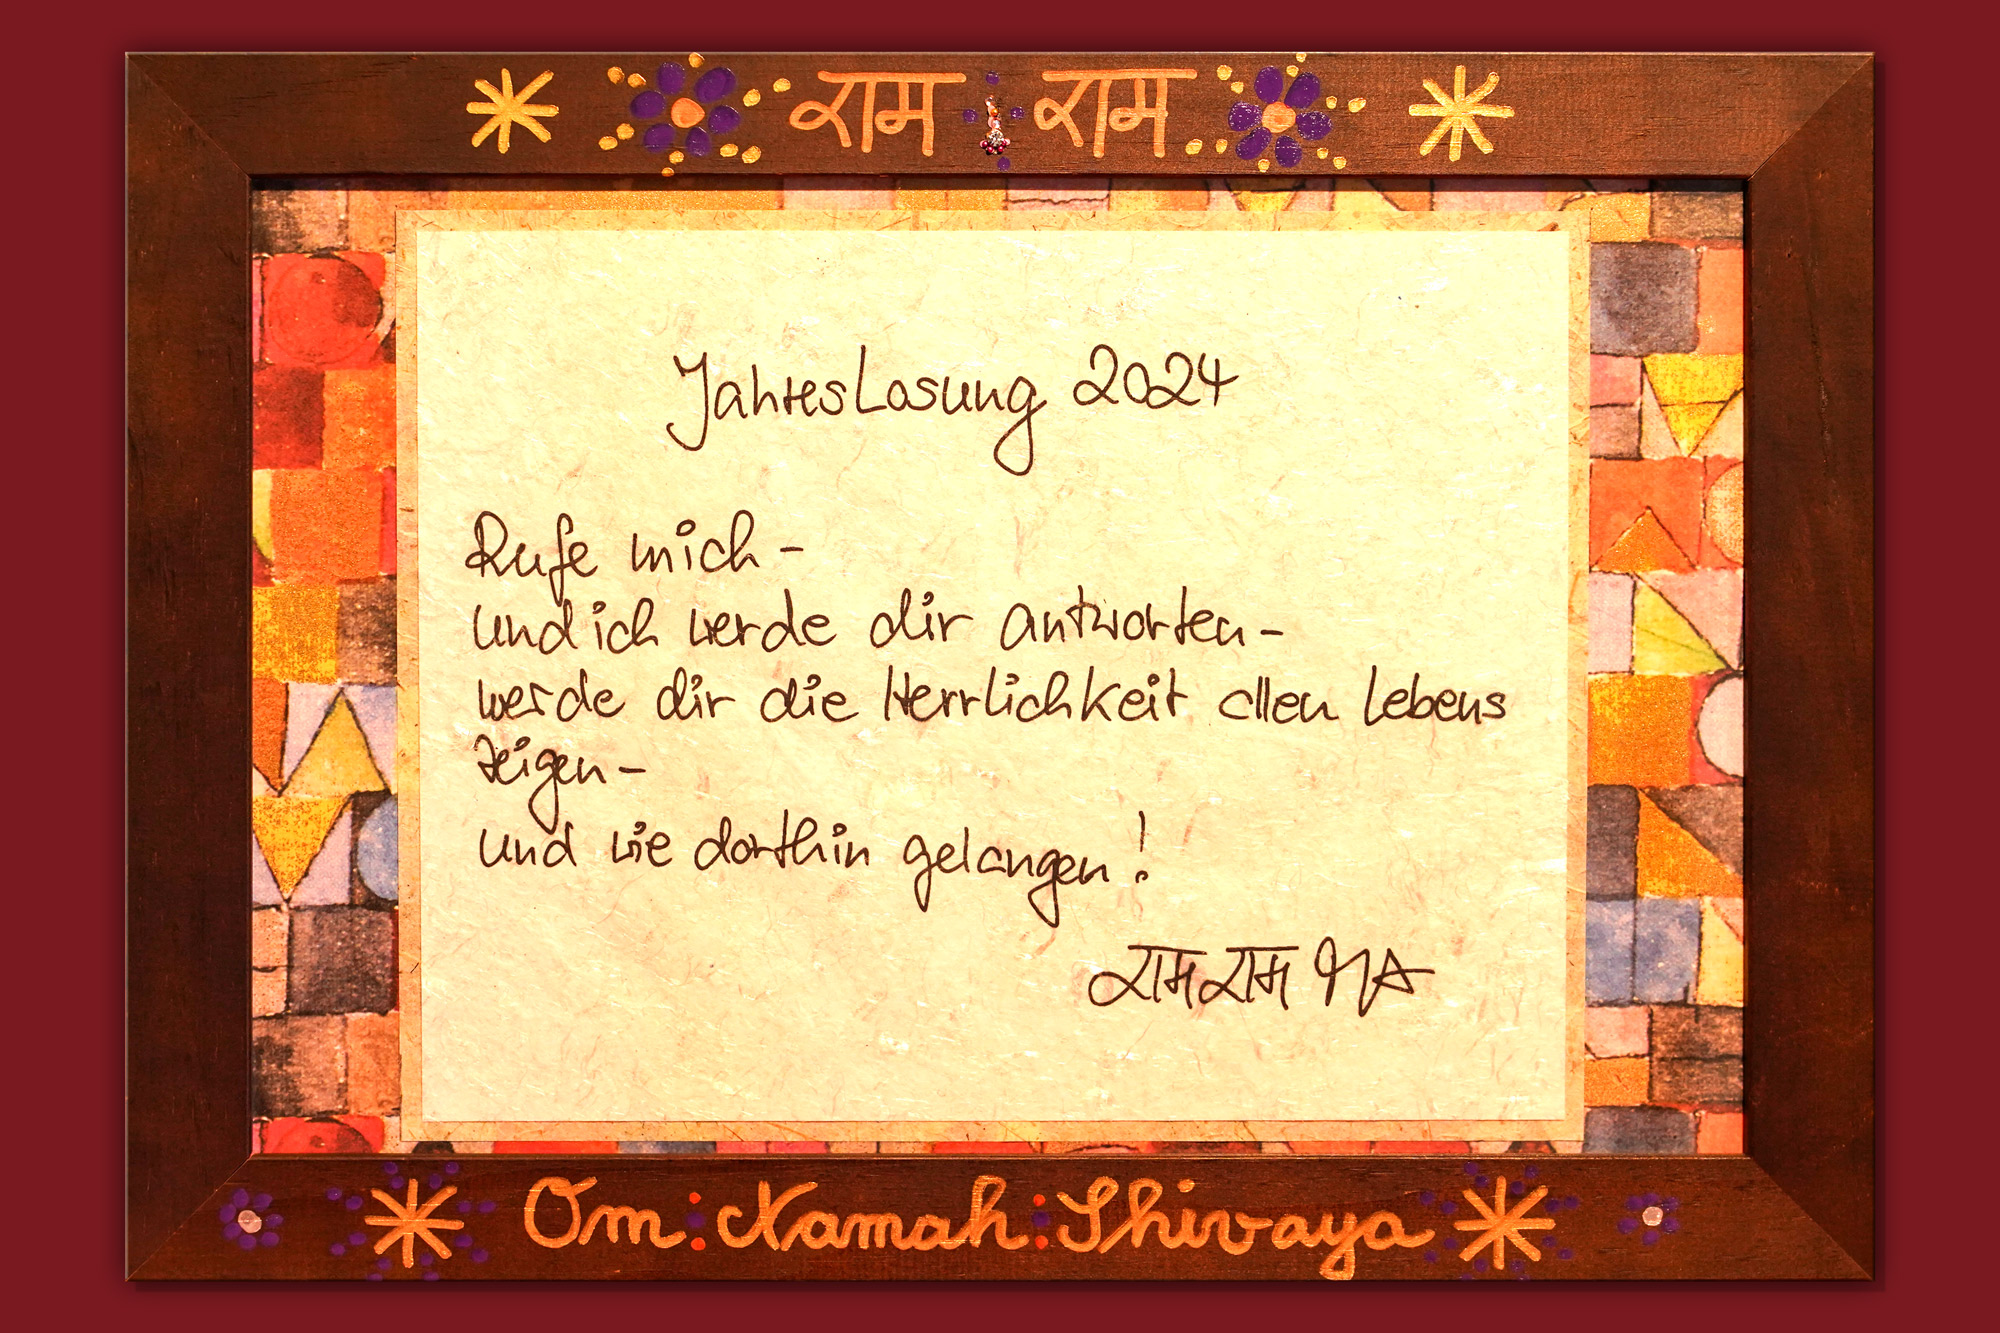 राम राम
JahresLosung 2024
Rufe mich –
und ich werde dir antworten –
werde dir die Herrlichkeit allen Lebens
zeigen –
und wie dorthin gelangen!
राम राम
Om : Namah : Shivaya